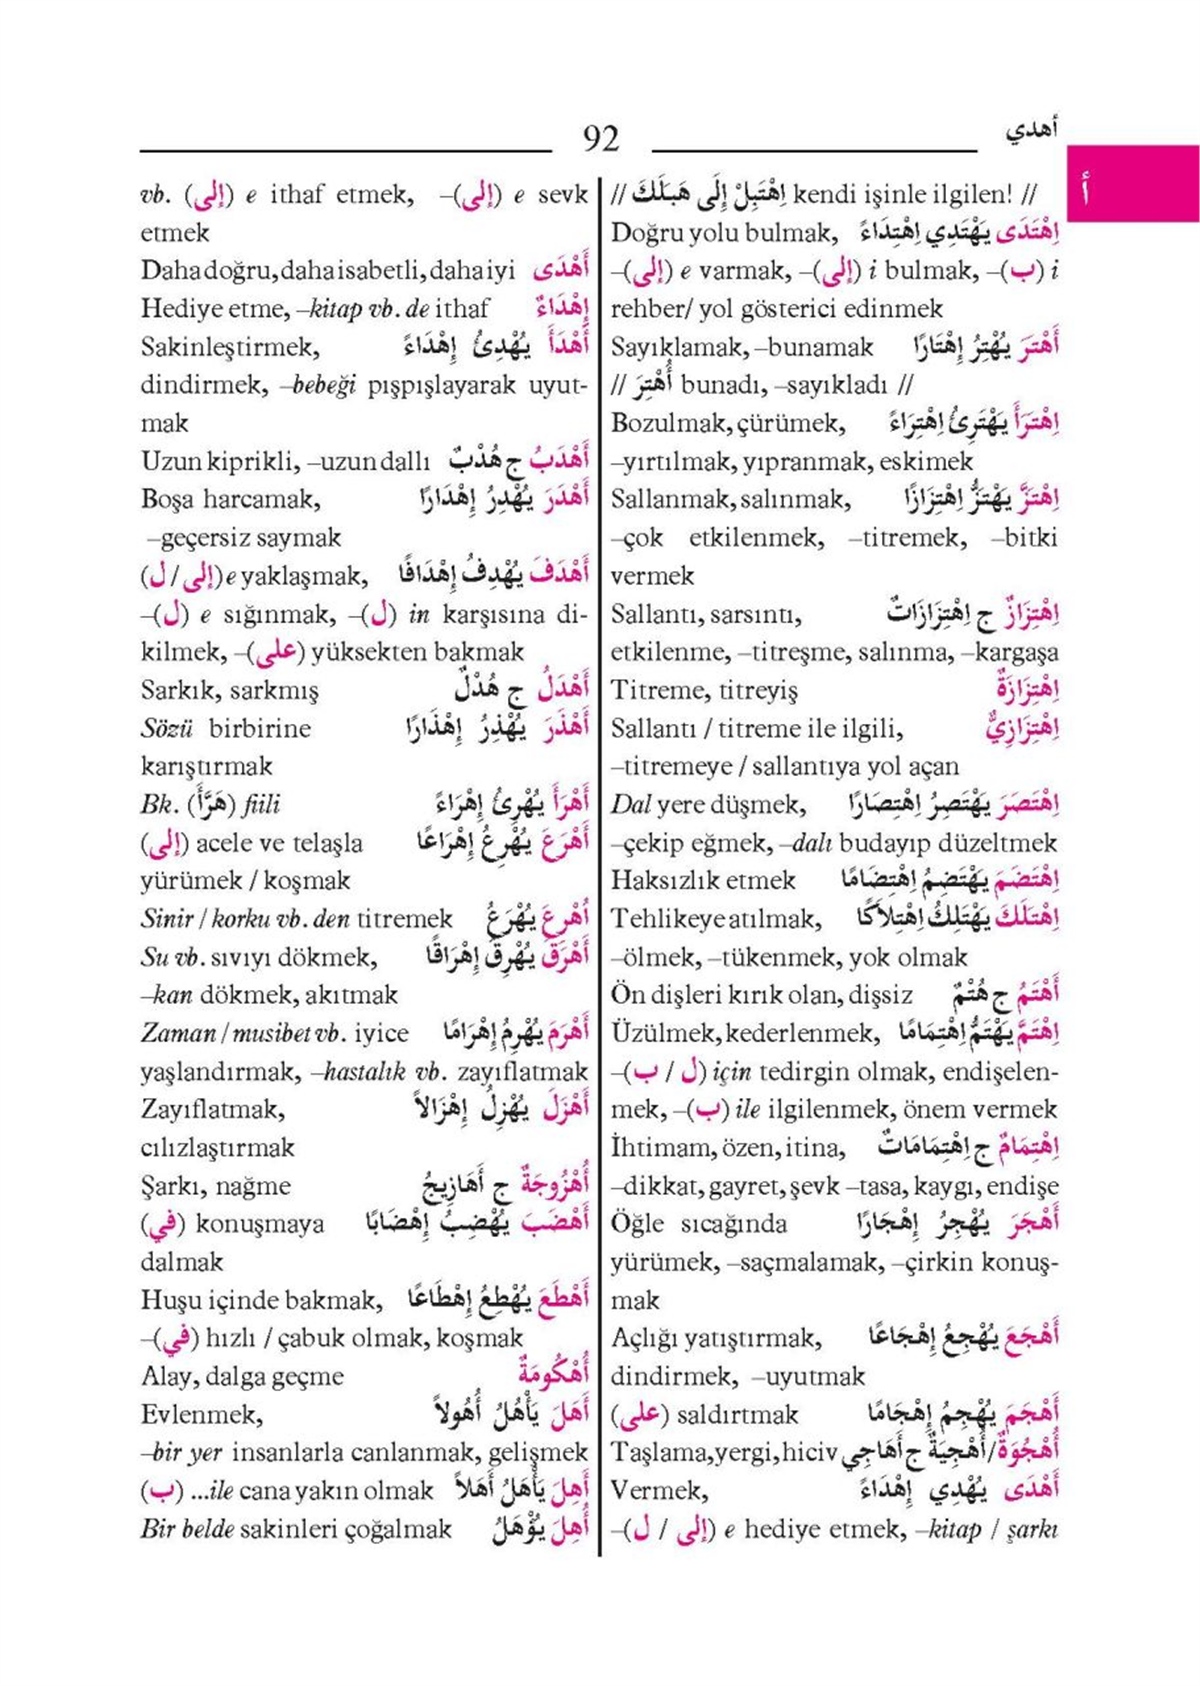 أهدي
92
أ
// اِهْتَبِلْ إِلَى هَبَلَكَ kendi işinle ilgilen! //
اِهْتَدَى يَهْتَدِي اِهْتِدَاءً Doğru yolu bulmak,
–(إلى) e varmak, –(إلى) i bulmak, –(ب) i
rehber/ yol gösterici edinmek
أَهْتَرَ يُهْتِرُ إِهْتَارًا Sayıklamak, –bunamak
// أُهْتِرَ bunadı, –sayıkladı //
اِهْتَرَأَ يَهْتَرِئُ اِهْتِرَاءً Bozulmak, çürümek,
–yırtılmak, yıpranmak, eskimek
اِهْتَزَّ يَهْتَزُّ اِهْتِزَازًا Sallanmak, salınmak,
–çok etkilenmek, –titremek, –bitki
vermek
اِهْتِزَازٌ ج اِهْتِزَازَاتٌ Sallantı, sarsıntı,
etkilenme, –titreşme, salınma, –kargaşa
اِهْتِزَازَةٌ Titreme, titreyiş
اِهْتِزَازِيٌّ Sallantı / titreme ile ilgili,
–titremeye / sallantıya yol açan
اِهْتَصَرَ يَهْتَصِرُ اِهْتِصَارًا Dal yere düşmek,
–çekip eğmek, –dalı budayıp düzeltmek
اِهْتَضَمَ يَهْتَضِمُ اِهْتِضَامًا Haksızlık etmek
اِهْتَلَكَ يَهْتَلِكُ اِهْتِلاَكًا Tehlikeye atılmak,
–ölmek, –tükenmek, yok olmak
أَهْتَمُ ج هُتْمٌ Ön dişleri kırık olan, dişsiz
اِهْتَمَّ يَهْتَمُّ اِهْتِمَامًا Üzülmek, kederlenmek,
–(ل / ب) için tedirgin olmak, endişelen-
mek, –(ب) ile ilgilenmek, önem vermek
اِهْتِمَامٌ ج اِهْتِمَامَاتٌ İhtimam, özen, itina,
–dikkat, gayret, şevk –tasa, kaygı, endişe
أَهْجَرَ يُهْجِرُ إِهْجَارًا Öğle sıcağında
yürümek, –saçmalamak, –çirkin konuş-
mak
أَهْجَعَ يُهْجِعُ إِهْجَاعًا Açlığı yatıştırmak,
dindirmek, –uyutmak
أَهْجَمَ يُهْجِمُ إِهْجَامًا (على) saldırtmak
أُهْجُوَةٌ/أُهْجِيَةٌ ج أَهَاجِي Taşlama, yergi, hiciv
أَهْدَى يُهْدِي إِهْدَاءً Vermek,
–(إلى / ل) e hediye etmek, –kitap / şarkı
vb. (إلى) e ithaf etmek, –(إلى) e sevk
etmek
أَهْدَى Daha doğru, daha isabetli, daha iyi
إِهْدَاءٌ Hediye etme, –kitap vb. de ithaf
أَهْدَأَ يُهْدِئُ إِهْدَاءً Sakinleştirmek,
dindirmek, –bebeği pışpışlayarak uyut-
mak
أَهْدَبُ ج هُدْبٌ Uzun kiprikli, –uzun dallı
أَهْدَرَ يُهْدِرُ إِهْدَارًا Boşa harcamak,
–geçersiz saymak
أَهْدَفَ يُهْدِفُ إِهْدَافًا (إلى/ ل) e yaklaşmak,
–(ل) e sığınmak, –(ل) in karşısına di-
kilmek, –(على) yüksekten bakmak
أَهْدَلُ ج هُدْلٌ Sarkık, sarkmış
أَهْذَرَ يُهْذِرُ إِهْذَارًا Sözü birbirine
karıştırmak
أَهْرَأَ يُهْرِئُ إِهْرَاءً Bk. (هَرَّأَ) fiili
أَهْرَعَ يُهْرِعُ إِهْرَاعًا (إلى) acele ve telaşla
yürümek / koşmak
أُهْرِعَ يُهْرَعُ Sinir / korku vb. den titremek
أَهْرَقَ يُهْرِقُ إِهْرَاقًا Su vb. sıvıyı dökmek,
–kan dökmek, akıtmak
أَهْرَمَ يُهْرِمُ إِهْرَامًا Zaman / musibet vb. iyice
yaşlandırmak, –hastalık vb. zayıflatmak
أَهْزَلَ يُهْزِلُ إِهْزَالاً Zayıflatmak,
cılızlaştırmak
أُهْزُوجَةٌ ج أَهَازِيجُ Şarkı, nağme
أَهْضَبَ يُهْضِبُ إِهْضَابًا (في) konuşmaya
dalmak
أَهْطَعَ يُهْطِعُ إِهْطَاعًا Huşu içinde bakmak,
–(في) hızlı / çabuk olmak, koşmak
أُهْكُومَةٌ Alay, dalga geçme
أَهَلَ يَأْهُلُ أُهُولاً Evlenmek,
–bir yer insanlarla canlanmak, gelişmek
أَهِلَ يَأْهَلُ أَهَلاً (ب) ...ile cana yakın olmak
أُهِلَ يُؤْهَلُ Bir belde sakinleri çoğalmak